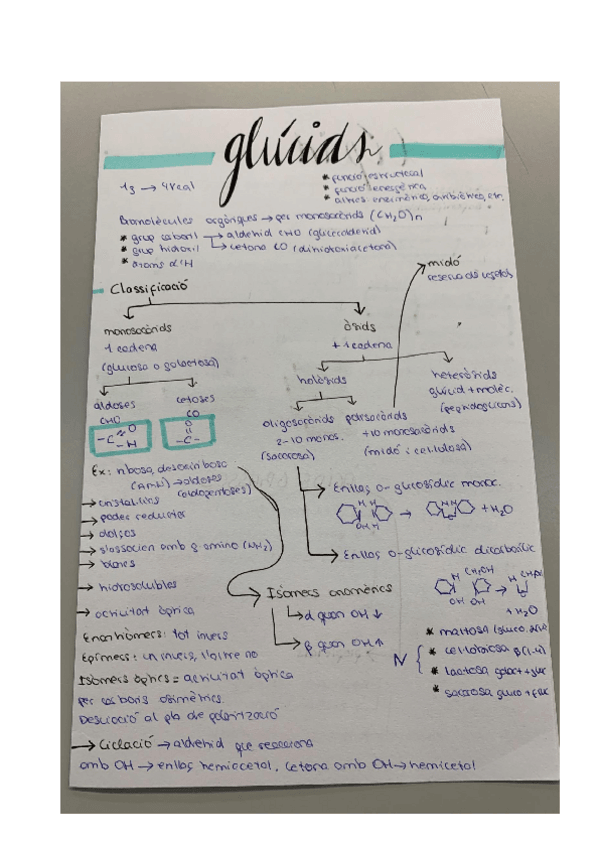 glúcids
1g → 4kcal
* funció estructural
* funció energètica
* altres: enzimàtica, antibiòtica, etc.
Biomolècules orgàniques → per monosacàrids (CH₂O)n
* grup carbonil → aldehid CHO (gliceraldehid)
* grup hidroxil → cetona CO (dihidroxiacetona)
* àtoms d'H
midó
reserva de vegetals
Classificació
monosacàrids
1 cadena
(glucosa o galactosa)
òsids
+ 1 cadena
holòsids
heteròsids
glúcid + molèc.
(peptidoglicans)
aldoses
CHO
-C
O
H
cetoses
CO
O
-C-
oligosacàrids
2-10 monos.
(sacarosa)
polisacàrids
+10 monosacàrids
(midó i cel·lulosa)
Ex: ribosa, desoxiribosa
(ARN) → aldoses
(aldopentoses)
→ cristal·lins
→ poder reductor
→ dolços
→ s'associen amb g. amino (NH₂)
→ blancs
→ hidrosolubles
→ activitat òptica
Enllaç o-glucosídic monoc.
H H
OH H
→
+ H₂O
Enllaç o-glicosídic dicarbonílic
H CH₂OH
OH OH
→ H
+ H₂O
Isòmers anomèrics
→ α quan OH ↓
→ β quan OH ↑
Enantiòmers: tot invers
Epímers: un invers, l'altre no
Isòmers òptics = activitat òptica
per carbonis asimètrics
Desviació al pla de polarització
N
* maltosa (gluco.
* cel·lobiosa β(1-4)
* lactosa galact + gluc
* sacarosa gluco + fruc
→ Ciclació → aldehid que reacciona
amb OH → enllaç hemiacetal, cetona amb OH → hemicetal